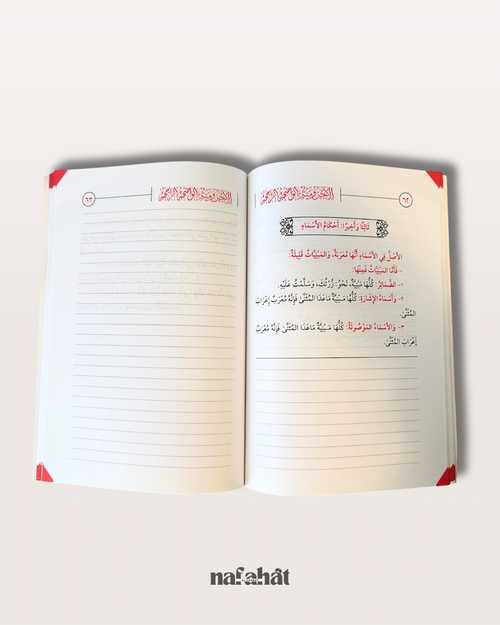 ٦٢
ثَالِثًا وَأَخِيرًا: أَحْكَامُ الأَسْمَاءِ
الأَصْلُ فِي الأَسْمَاءِ أَنَّهَا مُعْرَبَةٌ، وَالمَبْنِيَّاتُ قَلِيلَةٌ.
- فَأَمَّا المَبْنِيَّاتُ فَمِنْهَا:
١- الضَّمَائِرُ: كُلُّهَا مَبْنِيَّةٌ، نَحْوُ: زُرْتُكَ، وَسَلَّمْتُ عَلَيْهِ.
٢- وَأَسْمَاءُ الإِشَارَةِ: كُلُّهَا مَبْنِيَّةٌ مَاعَدَا المُثَنَّى فَإِنَّهُ مُعْرَبٌ إِعْرَابَ
المُثَنَّى.
٣- وَالأَسْمَاءُ المَوْصُولَةُ: كُلُّهَا مَبْنِيَّةٌ مَاعَدَا المُثَنَّى فَإِنَّهُ مُعْرَبٌ
إِعْرَابَ المُثَنَّى.
٦٣
nafahāt